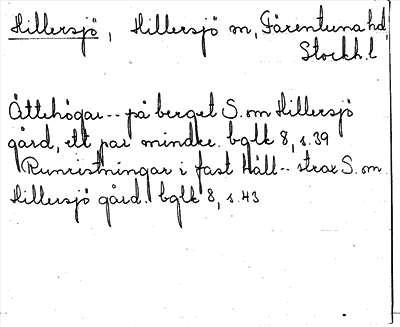 Hillersjö, Hillersjö sn, Färentuna hd
Stockh. l
Ättehögar -- på berget S. om Hillersjö
gård, ett par mindre. bglk 8, s. 39
Runristningar i fast häll -- strax S. om
Hillersjö gård. bglk 8, s. 43